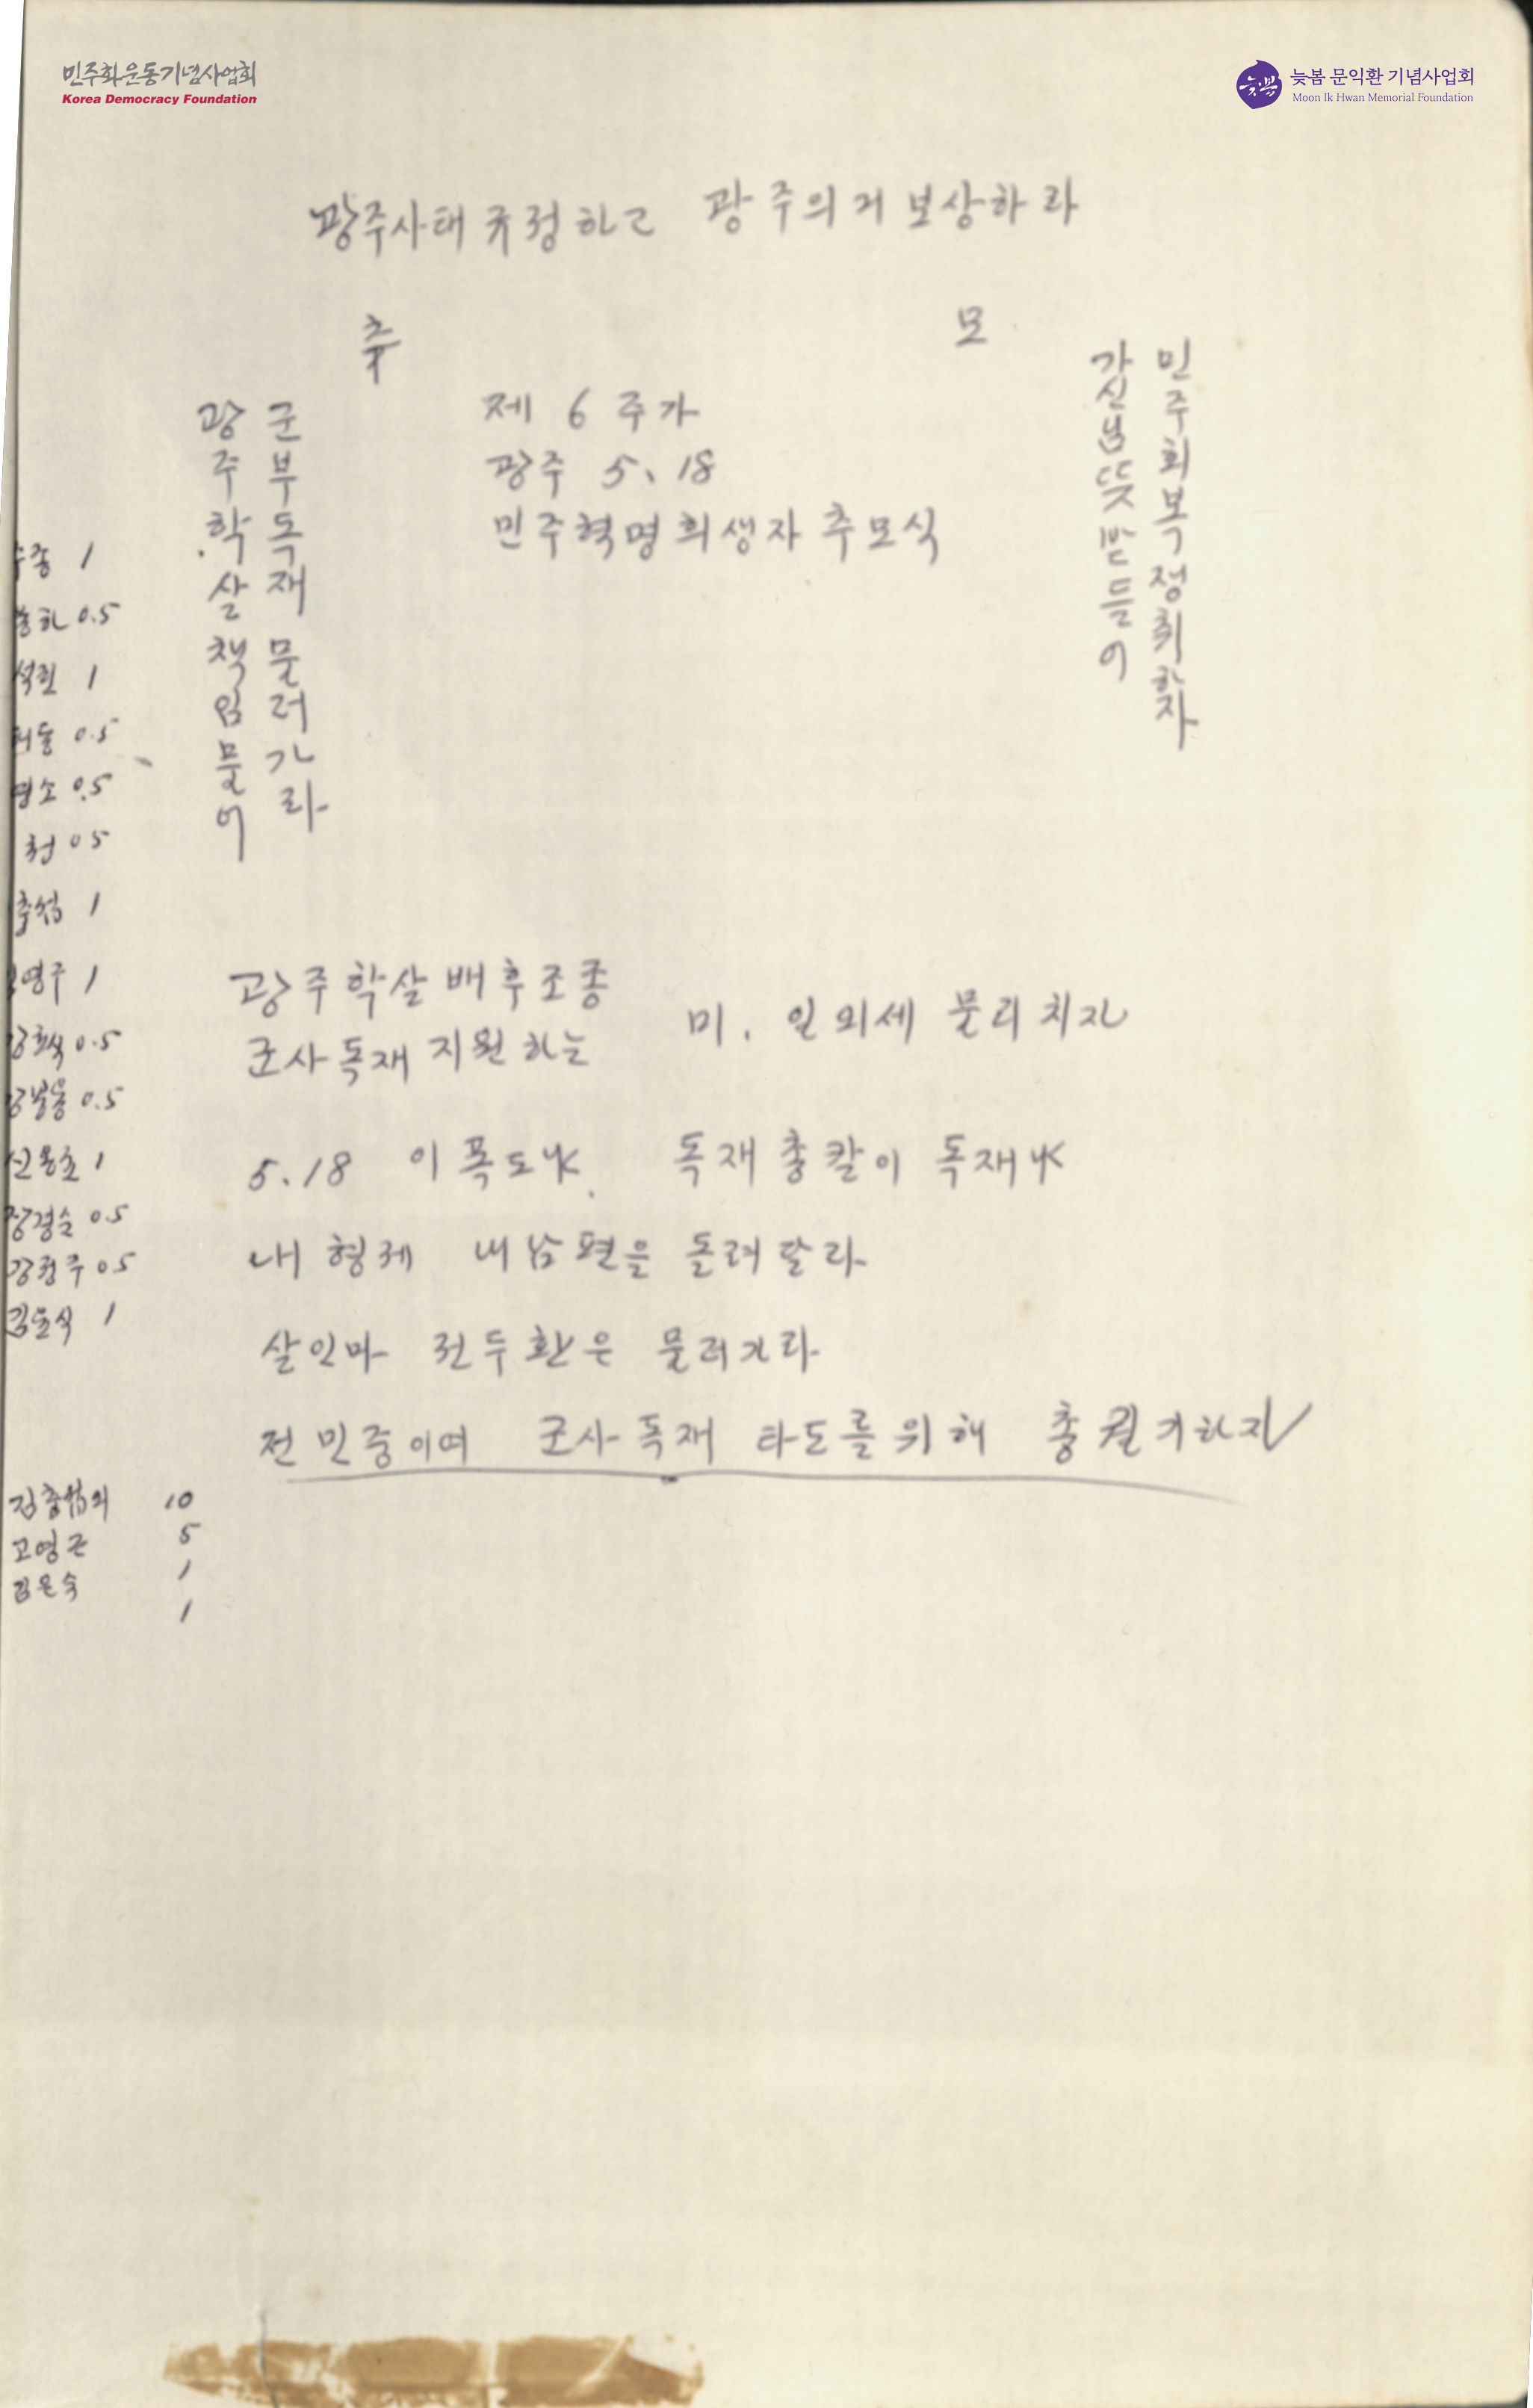 민주화운동기념사업회
Korea Democracy Foundation
늦봄 문익환 기념사업회
Moon Ik Hwan Memorial Foundation
늦봄
광주사태 규정하고 광주의거 보상하라
추 모
민주회복 정취하자
가신님 뜻 받들어
제 6 주기
광주 5、18
민주혁명희생자 추모식
군부독재 물러가라
광주학살책임물어
1
0.5
1
0.5
0.5
0 5
1
영주 1
0.5
0.5
1
0.5
0 5
1
광주학살 배후조종
군사독재 지원하는
미. 일외세 물리치자
5.18 이 폭도냐. 독재총칼이 독재냐
내 형제 내남편을 돌려달라
살인마 전두환은 물러가라
전민중이여 군사독재 타도를 위해 총궐기하자
10
고영근 5
김은숙 1
1